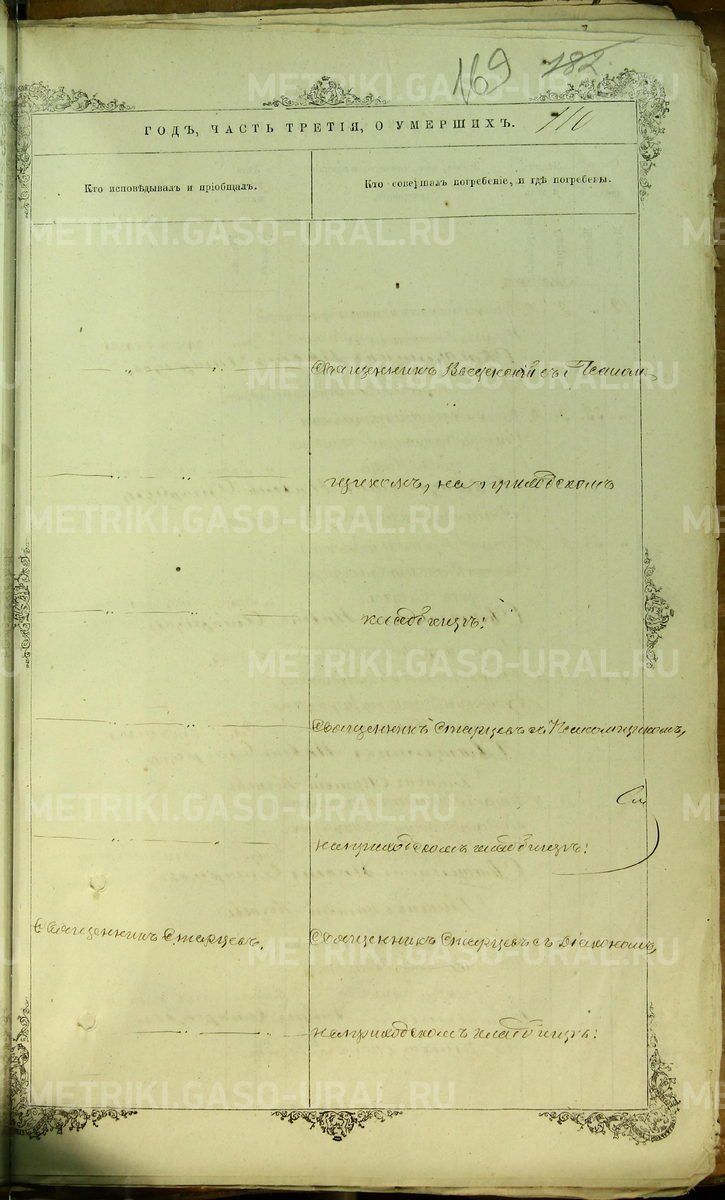 169 182
110
ГОДЪ, ЧАСТЬ ТРЕТІЯ, О УМЕРШИХЪ.
Кто исповѣдывалъ и пріобщалъ.
Кто совершалъ погребеніе, и гдѣ погребены.
METRIKI.GASO-URAL.RU
Священникъ съ Псалом
щикомъ, на приходскомъ
кладбищѣ.
Священникъ Старцевъ съ Псаломщикомъ,
на приходскомъ кладбищѣ.
Священникъ Старцевъ.
Священникъ Старцевъ съ Діакономъ,
на приходскомъ кладбищѣ.